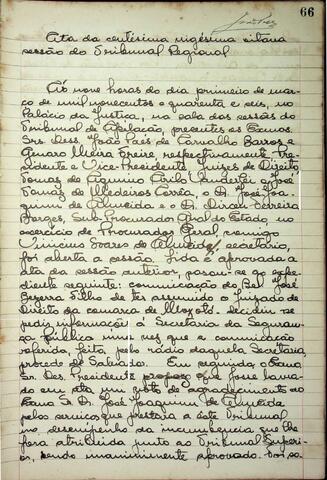 66
Ata da centésima vigésima oitava
sessão do Tribunal Regional
Ás nove horas do dia primeiro de mar-
ço de mil novecentos e quarenta e seis, no
Palacio da Justiça, na sala das sessões do
Tribunal de Apelação, presentes os Exmos.
Srs. Dess. João Paes de Carvalho Barros e
Genaro Freire, respectivamente Pre-
sidente e Vice-Presidente, Juizes de Direito,
Tomaz de Aquino Cirilo Wanderlei e José
Tomaz de Medeiros Corrêa, o Dr. José Joa-
quim de Almeida e o Dr. Dirceu Ferreira
Borges, Sub-Procurador Geral do Estado, no
exercicio de Procurador Geral, comigo
Vinicius Soares de Almeida, secretário,
foi aberta a sessão. Lida e aprovada a
ata da sessão anterior, passou-se ao expe-
diente seguinte: comunicação do Bel. José
Bezerra Filho de ter assumido o Juizado de
Direito da comarca de Moxotó. Decidiu-se
pedir informações á Secretaria da Seguran-
ça Pública uma vez que a comunicação
referida, feita pelo rádio daquela Secretaria,
procede de Salvador. Em seguida o Exmo.
Sr. Des. Presidente propoz que fosse lavra-
do em ata um voto de agradecimento ao
Exmo. S. Dr. José Joaquim de Almeida
pelos serviços que prestára a este Tribunal
no desempenho da incumbencia que lhe
fora atribuida junto ao Tribunal Superi-
or, sendo unanimemente aprovado. Foi sa